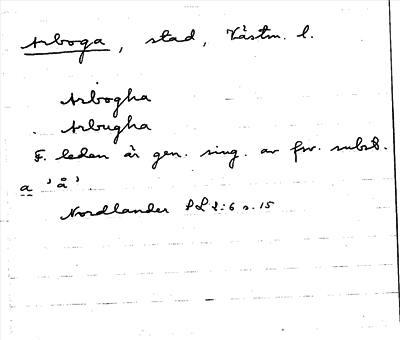 Arboga, stad, Västm. l.
Arbogha
Arbugha
F. leden är gen. sing. av fsv. subst.
a 'å'
Nordlander PL 2:6 s. 15